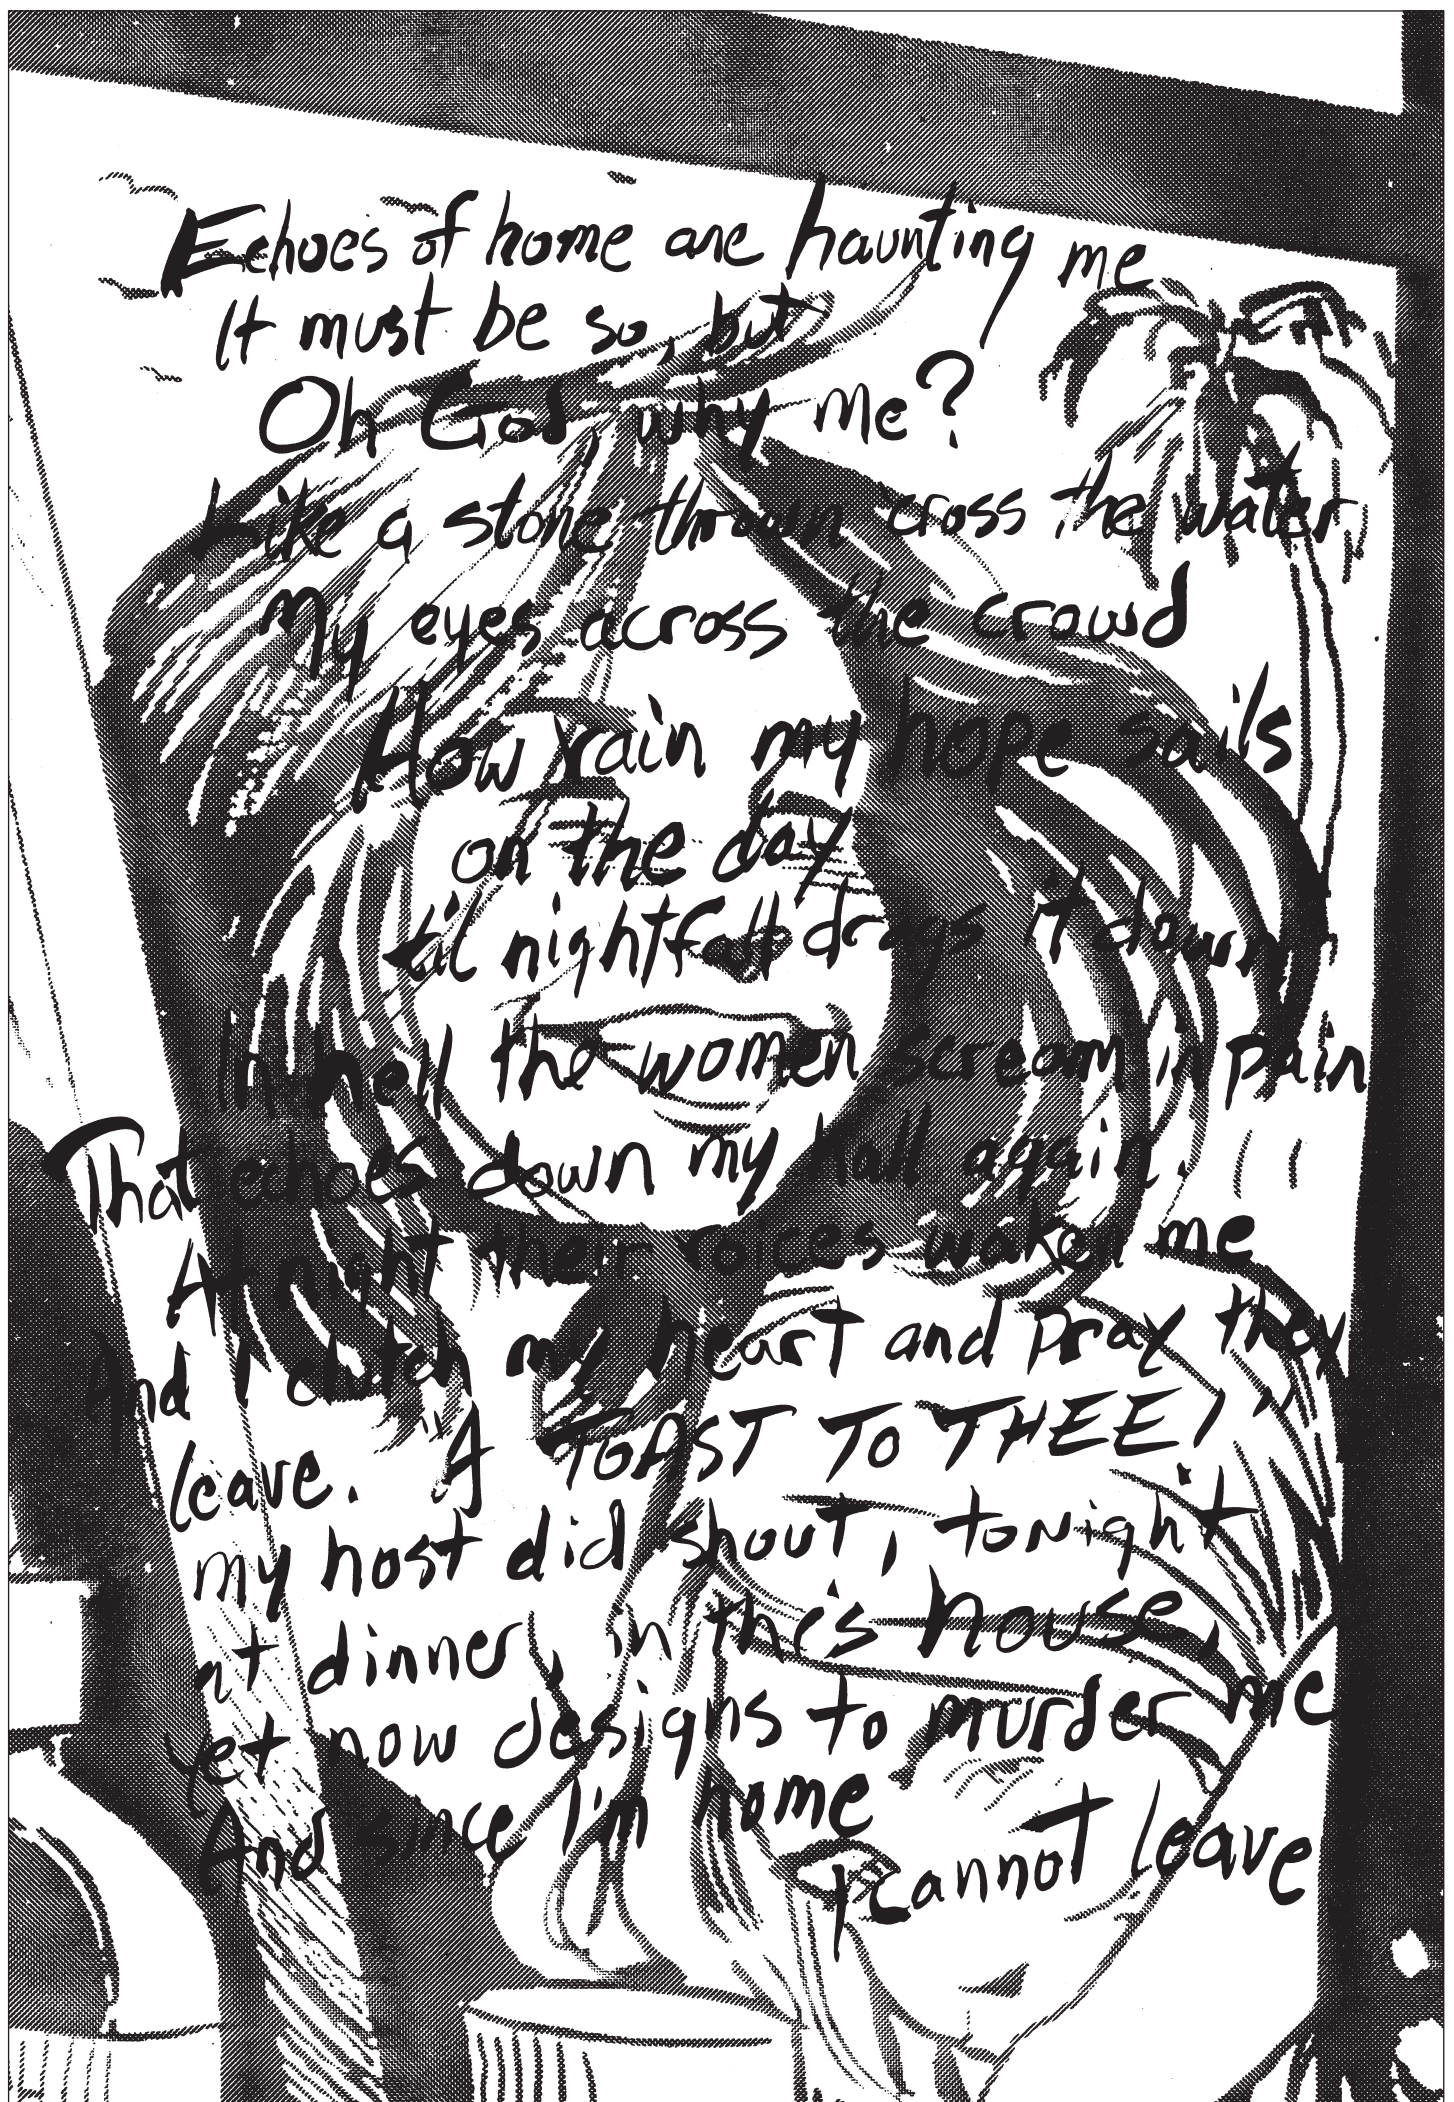 Echoes of home are haunting me
It must be so, but
Oh God, why me?
Like a stone thrown cross the water,
My eyes across the crowd
How vain my hope sails
on the day
til nightfall drags it down
In hell the women scream in pain
That echoes down my hall again.
At night their voices waken me
And I clutch my heart and pray they
leave. A TOAST TO THEE!
my host did shout, tonight
at dinner, in this house,
yet now designs to murder me
And since I'm home
I cannot leave